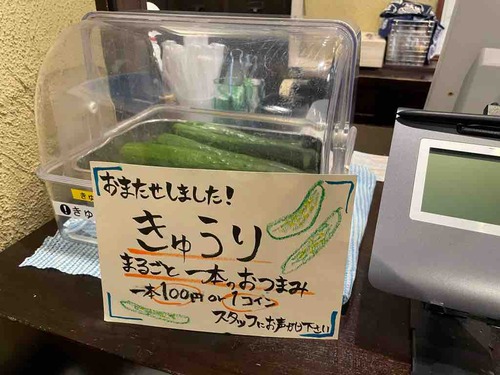 おまたせしました!
きゅうり
まるごと一本のおつまみ
一本100円or1コイン
スタッフにお声がけ下さい
きゅ
❶きゅ